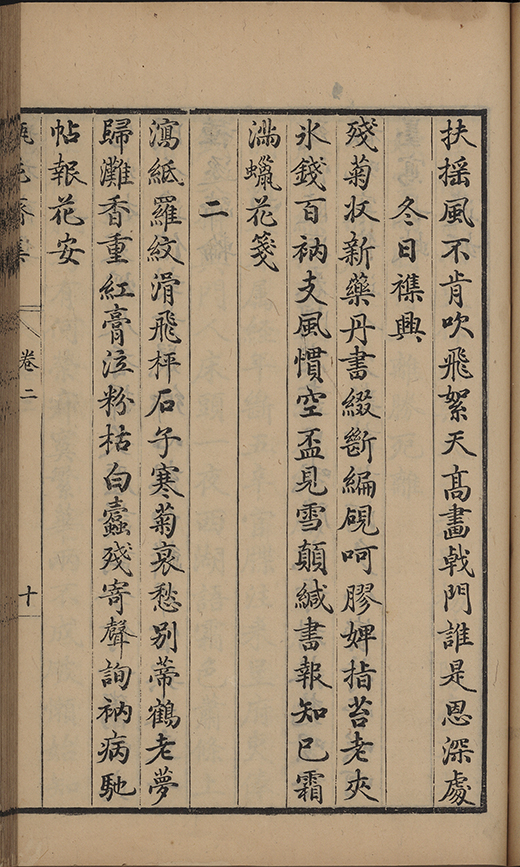 扶搖風不肯吹飛絮天髙畫㦸門誰是恩深處
冬日襍興
殘菊収新藥丹書綴斷編硯呵膠婢指苔老夾
氷錢百衲支風慣空盃見雪顛緘書報知已霜
濡蠟花箋
二
瀉紙羅紋滑飛枰石子寒菊哀愁别蒂鶴老夢
歸灘香重紅膏泣粉枯白蠧殘寄聲詢衲病馳
帖報花安
卷二
十